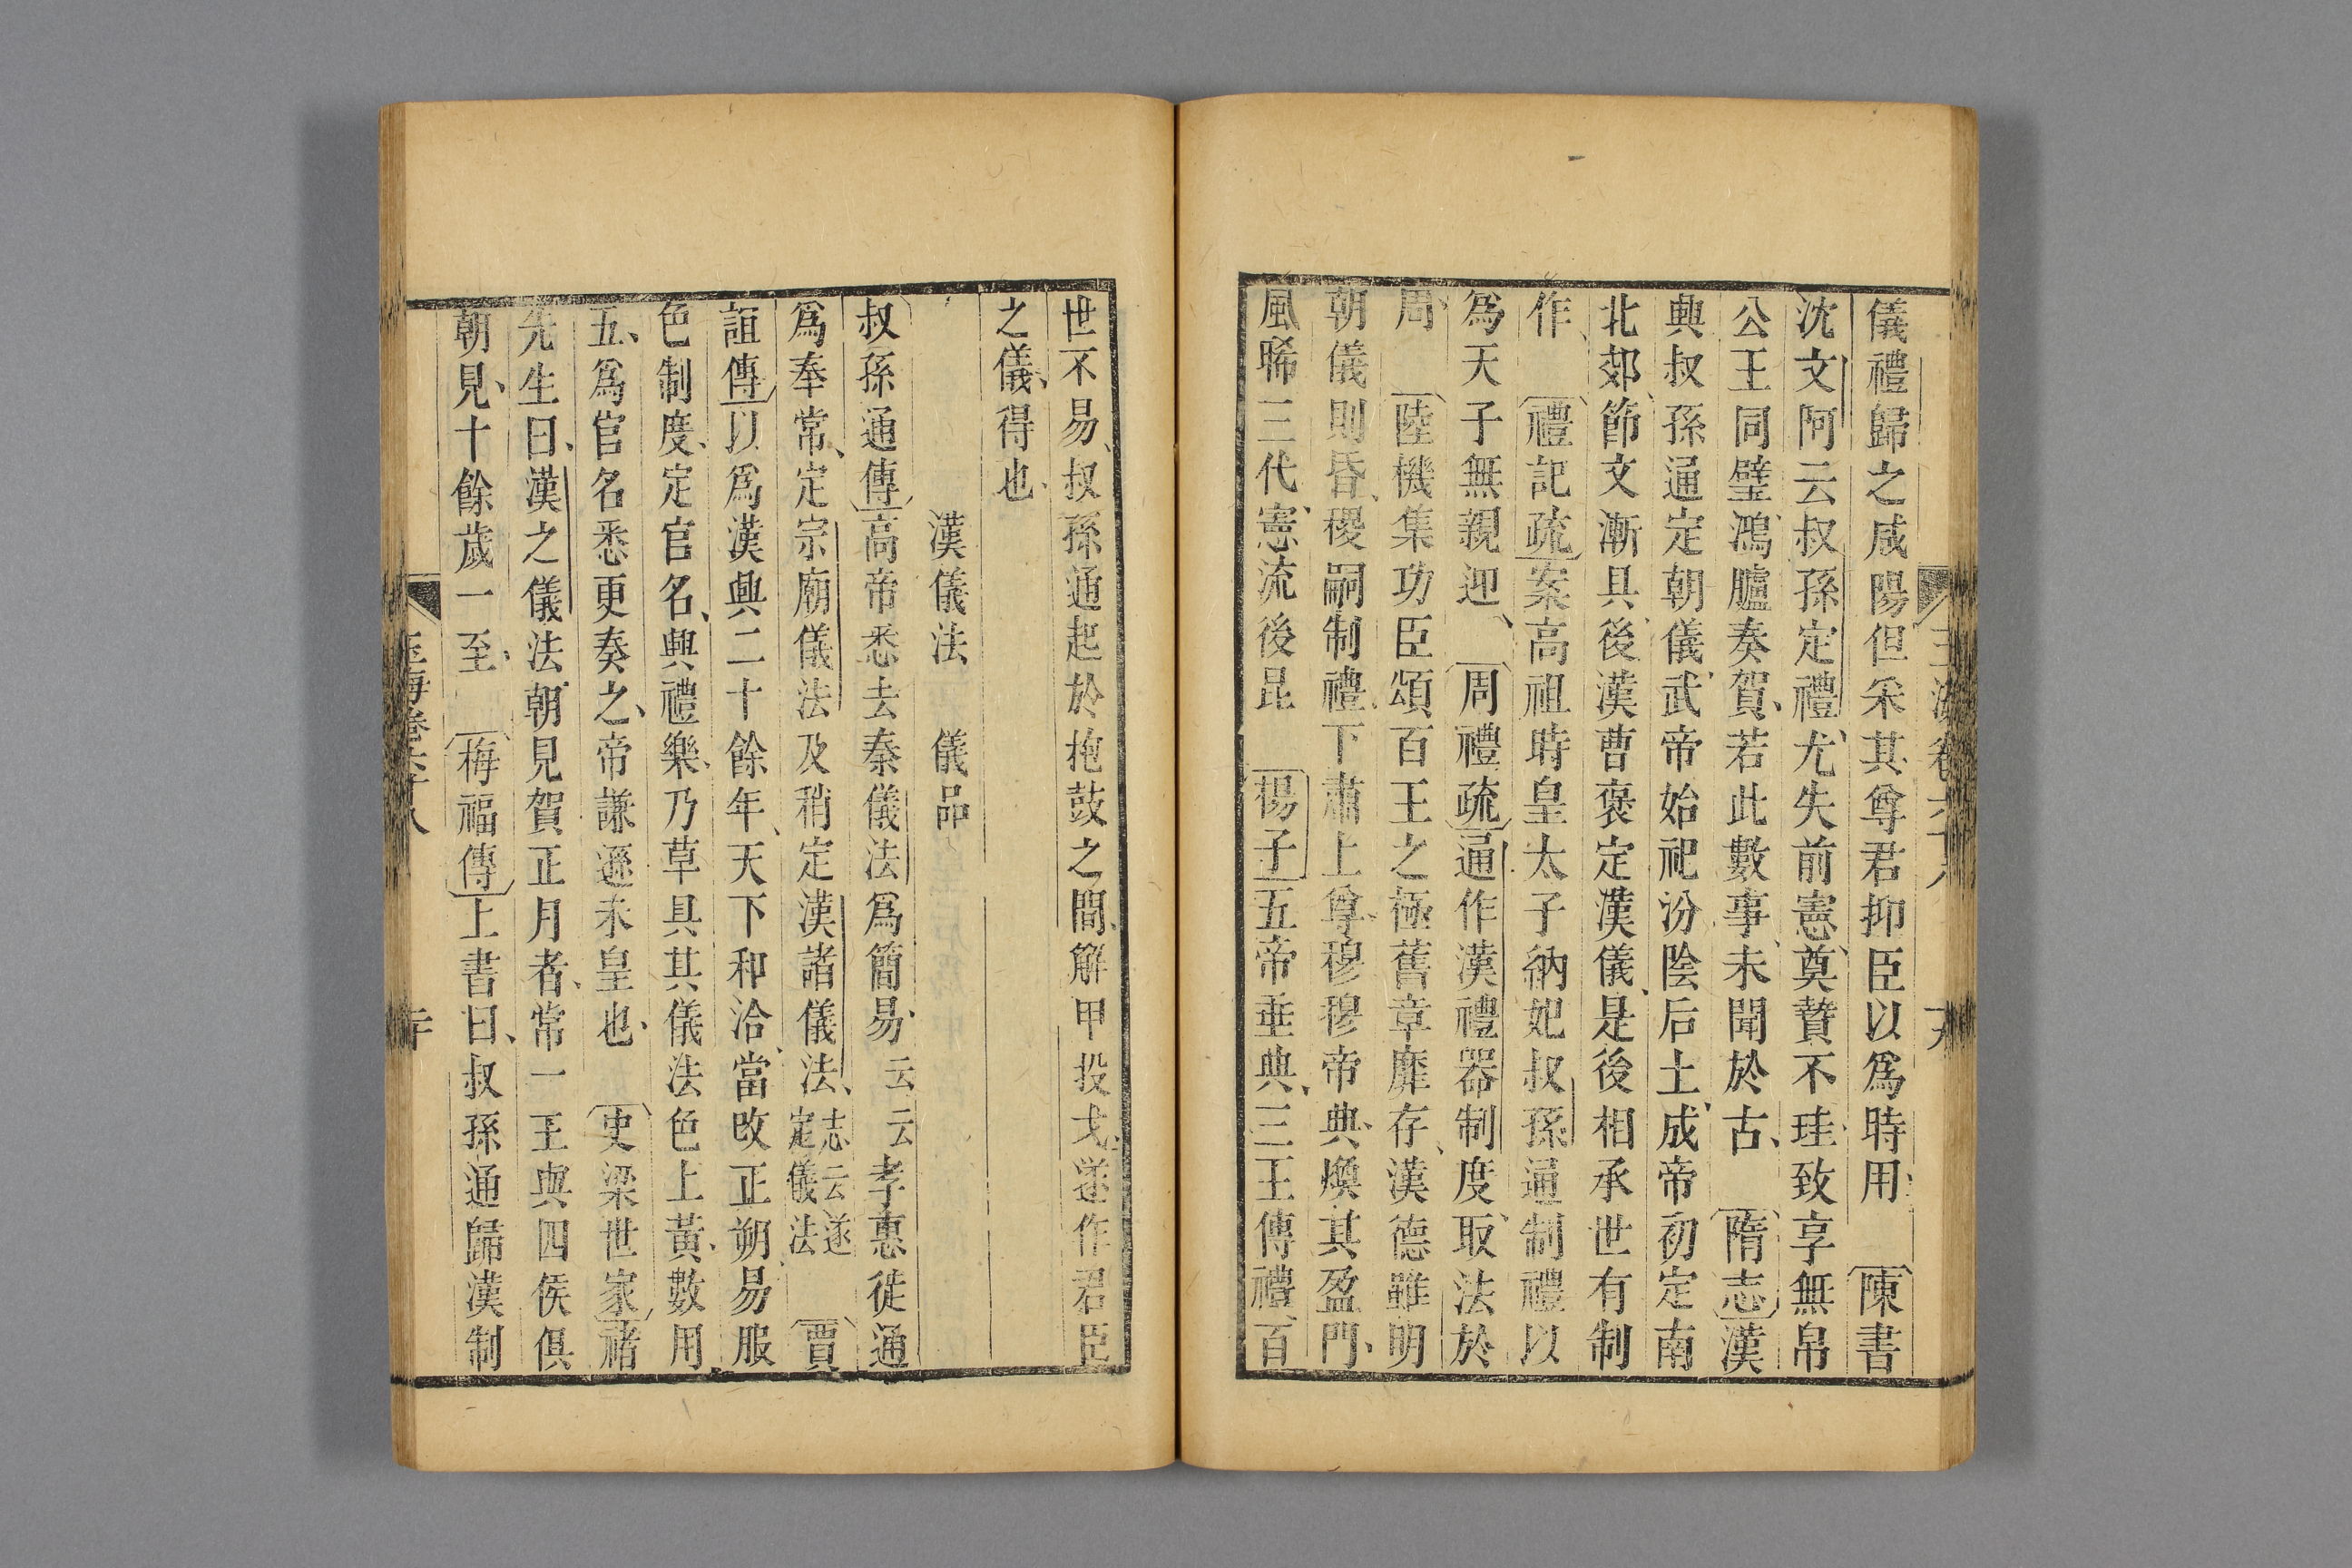 儀禮歸之咸陽但采其尊君抑臣以爲時用　陳書
沈文阿云叔孫定禮尤失前憲奠贄不珪致享無帛
公王同璧鴻臚奏賀若此數事未聞於古　隋志漢
興叔孫通定朝儀武帝始祀汾陰后土成帝初定南
北郊節文漸具後漢曹褒定漢儀是後相承世有制
作　禮記疏案高祖時皇太子納妃叔孫通制禮以
爲天子無親迎　周禮疏通作漢禮器制度取法於
周　陸機集功臣頌百王之極舊章靡存漢德雖明
朝儀則昏稷嗣制禮下肅上尊穆穆帝典煥其盈門
風睎三代憲流後昆　楊子五帝垂典三王傳禮百
世不易叔孫通起於枹鼓之間解甲投戈遂作君臣
之儀得也
漢儀法　儀品
叔孫通傳高帝悉去秦儀法爲簡易云云孝惠徙通
爲奉常定宗廟儀法及稍定漢諸儀法志云遂定儀法　賈
誼傳以爲漢興二十餘年天下和洽當改正朔易服
色制度定官名興禮樂乃草具其儀法色上黃數用
五爲官名悉更奏之帝謙遜未皇也　史梁世家褚
先生曰漢之儀法朝見賀正月者常一王與四侯俱
朝見十餘歲一至　梅福傳上書曰叔孫通歸漢制
玉海卷六十八